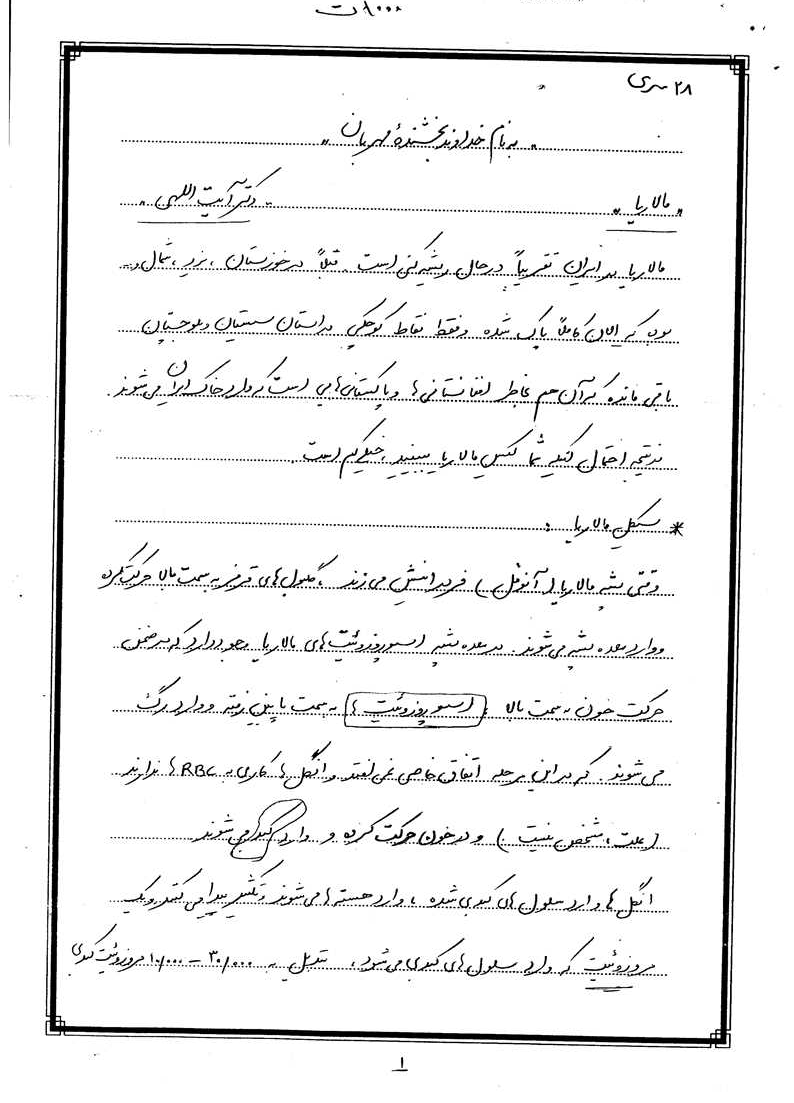 ۲۸ سری
„ به نام خداوند بخشندهٔ مهربان „
„ مالاریا „ „ دکتر آیت اللهی „
مالاریا در ایران تقریباً در حال ریشه کنی است. قبلاً در خوزستان، یزد، شمال و...
بود که الان کاملاً پاک شده و فقط نقاط کوچکی در استان سیستان و بلوچستان
باقی مانده که آن هم بخاطر افغانستانی ها و پاکستانی هایی است که وارد خاک ایران می شوند.
در نتیجه احتمال اینکه شما کیس مالاریا ببینید، خیلی کم است.
* سیکل مالاریا :
وقتی پشه مالاریا (آنوفل) فرد را نیش می زند، گلبول های قرمز به سمت بالا حرکت کرده
و وارد معده پشه می شوند. در معده پشه اسپوروزوئیت های مالاریا وجود دارد که در ضمن
حرکت خون به سمت بالا، اسپوروزوئیت ها به سمت پایین رفته و وارد رگ
می شوند. که در این مرحله اتفاق خاصی نمی افتد و انگل ها کاری به RBC ها ندارند
(علت، مشخص نیست) و در خون حرکت کرده و وارد کبد می شوند.
انگل ها وارد سلول های کبدی شده، وارد هسته ها می شوند و تکثیر پیدا می کنند و یک
مروزوئیت که وارد سلول های کبدی می شود، تبدیل به ۳۰/۰۰۰ – ۱۰/۰۰۰ مروزوئیت کبدی
۱